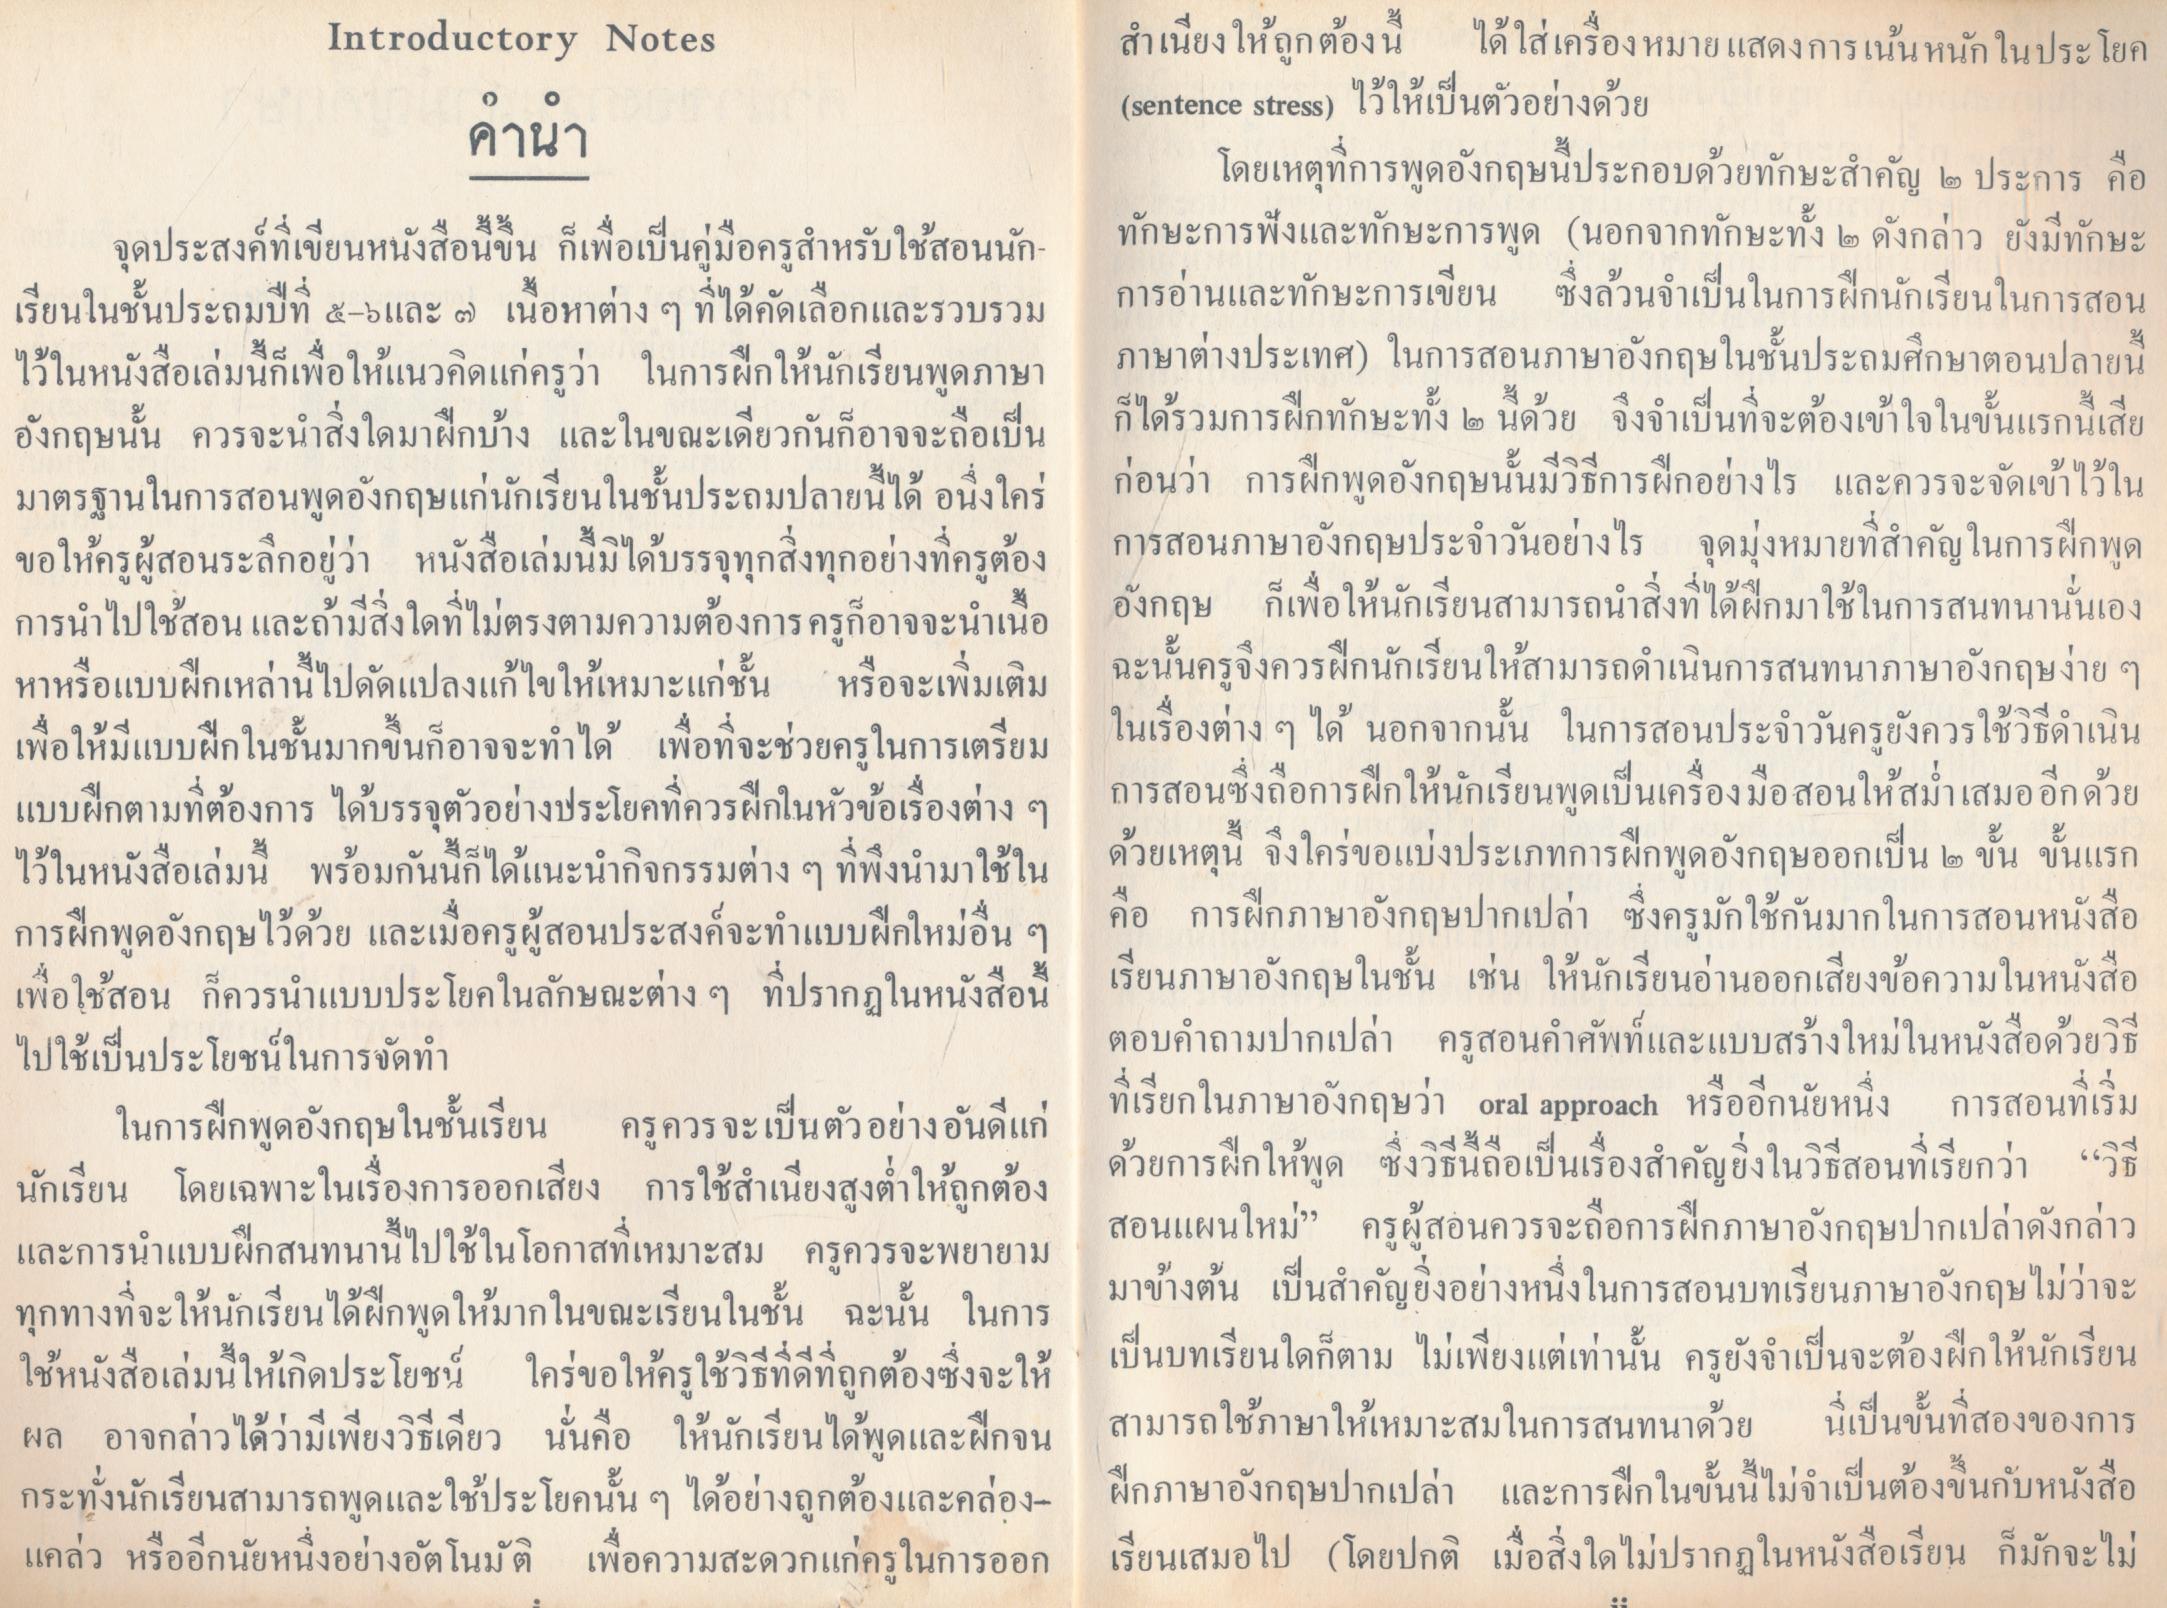 Introductory Notes
คำนำ
จุดประสงค์ที่เขียนหนังสือนี้ขึ้น ก็เพื่อเป็นคู่มือครูสำหรับใช้สอนนัก-
เรียนในชั้นประถมปีที่ ๕-๖และ ๗ เนื้อหาต่าง ๆ ที่ได้คัดเลือกและรวบรวม
ไว้ในหนังสือเล่มนี้ก็เพื่อให้แนวคิดแก่ครูว่า ในการฝึกให้นักเรียนพูดภาษา
อังกฤษนั้น ควรจะนำสิ่งใดมาฝึกบ้าง และในขณะเดียวกันก็อาจจะถือเป็น
มาตรฐานในการสอนพูดอังกฤษแก่นักเรียนในชั้นประถมปลายนี้ได้ อนึ่งใคร่
ขอให้ครูผู้สอนระลึกอยู่ว่า หนังสือเล่มนี้มิได้บรรจุทุกสิ่งทุกอย่างที่ครูต้อง
การนำไปใช้สอน และถ้ามีสิ่งใดที่ไม่ตรงตามความต้องการ ครูก็อาจจะนำเนื้อ
หาหรือแบบฝึกเหล่านี้ไปดัดแปลงแก้ไขให้เหมาะแก่ชั้น หรือจะเพิ่มเติม
เพื่อให้มีแบบฝึกในชั้นมากขึ้นก็อาจจะทำได้ เพื่อที่จะช่วยครูในการเตรียม
แบบฝึกตามที่ต้องการ ได้บรรจุตัวอย่างประโยคที่ควรฝึกในหัวข้อเรื่องต่าง ๆ
ไว้ในหนังสือเล่มนี้ พร้อมกันนี้ก็ได้แนะนำกิจกรรมต่าง ๆ ที่พึงนำมาใช้ใน
การฝึกพูดอังกฤษไว้ด้วย และเมื่อครูผู้สอนประสงค์จะทำแบบฝึกใหม่อื่น ๆ
เพื่อใช้สอน ก็ควรนำแบบประโยคในลักษณะต่าง ๆ ที่ปรากฏในหนังสือนี้
ไปใช้เป็นประโยชน์ในการจัดทำ
ในการฝึกพูดอังกฤษในชั้นเรียน ครูควรจะเป็นตัวอย่างอันดีแก่
นักเรียน โดยเฉพาะในเรื่องการออกเสียง การใช้สำเนียงสูงต่ำให้ถูกต้อง
และการนำแบบฝึกสนทนานี้ไปใช้ในโอกาสที่เหมาะสม ครูควรจะพยายาม
ทุกทางที่จะให้นักเรียนได้ฝึกพูดให้มากในขณะเรียนในชั้น ฉะนั้น ในการ
ใช้หนังสือเล่มนี้ให้เกิดประโยชน์ ใคร่ขอให้ครูใช้วิธีที่ดีที่ถูกต้องซึ่งจะให้
ผล อาจกล่าวได้ว่ามีเพียงวิธีเดียว นั่นคือ ให้นักเรียนได้พูดและฝึกจน
กระทั่งนักเรียนสามารถพูดและใช้ประโยคนั้น ๆ ได้อย่างถูกต้องและคล่อง-
แคล่ว หรืออีกนัยหนึ่งอย่างอัตโนมัติ เพื่อความสะดวกแก่ครูในการออก
สำเนียงให้ถูกต้องนี้ ได้ใส่เครื่องหมายแสดงการเน้นหนักในประโยค
(sentence stress) ไว้ให้เป็นตัวอย่างด้วย
โดยเหตุที่การพูดอังกฤษนี้ประกอบด้วยทักษะสำคัญ ๒ ประการ คือ
ทักษะการฟังและทักษะการพูด (นอกจากทักษะทั้ง ๒ ดังกล่าว ยังมีทักษะ
การอ่านและทักษะการเขียน ซึ่งล้วนจำเป็นในการฝึกนักเรียนในการสอน
ภาษาต่างประเทศ) ในการสอนภาษาอังกฤษในชั้นประถมศึกษาตอนปลายนี้
ก็ได้รวมการฝึกทักษะทั้ง ๒ นี้ด้วย จึงจำเป็นที่จะต้องเข้าใจในขั้นแรกนี้เสีย
ก่อนว่า การฝึกพูดอังกฤษนั้นมีวิธีการฝึกอย่างไร และควรจะจัดเข้าไว้ใน
การสอนภาษาอังกฤษประจำวันอย่างไร จุดมุ่งหมายที่สำคัญในการฝึกพูด
อังกฤษ ก็เพื่อให้นักเรียนสามารถนำสิ่งที่ได้ฝึกมาใช้ในการสนทนานั่นเอง
ฉะนั้นครูจึงควรฝึกนักเรียนให้สามารถดำเนินการสนทนาภาษาอังกฤษง่าย ๆ
ในเรื่องต่าง ๆ ได้ นอกจากนั้น ในการสอนประจำวันครูยังควรใช้วิธีดำเนิน
การสอนซึ่งถือการฝึกให้นักเรียนพูดเป็นเครื่องมือสอนให้สม่ำเสมออีกด้วย
ด้วยเหตุนี้ จึงใคร่ขอแบ่งประเภทการฝึกพูดอังกฤษออกเป็น ๒ ขั้น ขั้นแรก
คือ การฝึกภาษาอังกฤษปากเปล่า ซึ่งครูมักใช้กันมากในการสอนหนังสือ
เรียนภาษาอังกฤษในชั้น เช่น ให้นักเรียนอ่านออกเสียงข้อความในหนังสือ
ตอบคำถามปากเปล่า ครูสอนคำศัพท์และแบบสร้างใหม่ในหนังสือด้วยวิธี
ที่เรียกในภาษาอังกฤษว่า oral approach หรืออีกนัยหนึ่ง การสอนที่เริ่ม
ด้วยการฝึกให้พูด ซึ่งวิธีนี้ถือเป็นเรื่องสำคัญยิ่งในวิธีสอนที่เรียกว่า “วิธี
สอนแผนใหม่” ครูผู้สอนควรจะถือการฝึกภาษาอังกฤษปากเปล่าดังกล่าว
มาข้างต้น เป็นสำคัญยิ่งอย่างหนึ่งในการสอนบทเรียนภาษาอังกฤษไม่ว่าจะ
เป็นบทเรียนใดก็ตาม ไม่เพียงแต่เท่านั้น ครูยังจำเป็นจะต้องฝึกให้นักเรียน
สามารถใช้ภาษาให้เหมาะสมในการสนทนาด้วย นี่เป็นขั้นที่สองของการ
ฝึกภาษาอังกฤษปากเปล่า และการฝึกในขั้นนี้ไม่จำเป็นต้องขึ้นกับหนังสือ
เรียนเสมอไป (โดยปกติ เมื่อสิ่งใดไม่ปรากฏในหนังสือเรียน ก็มักจะไม่